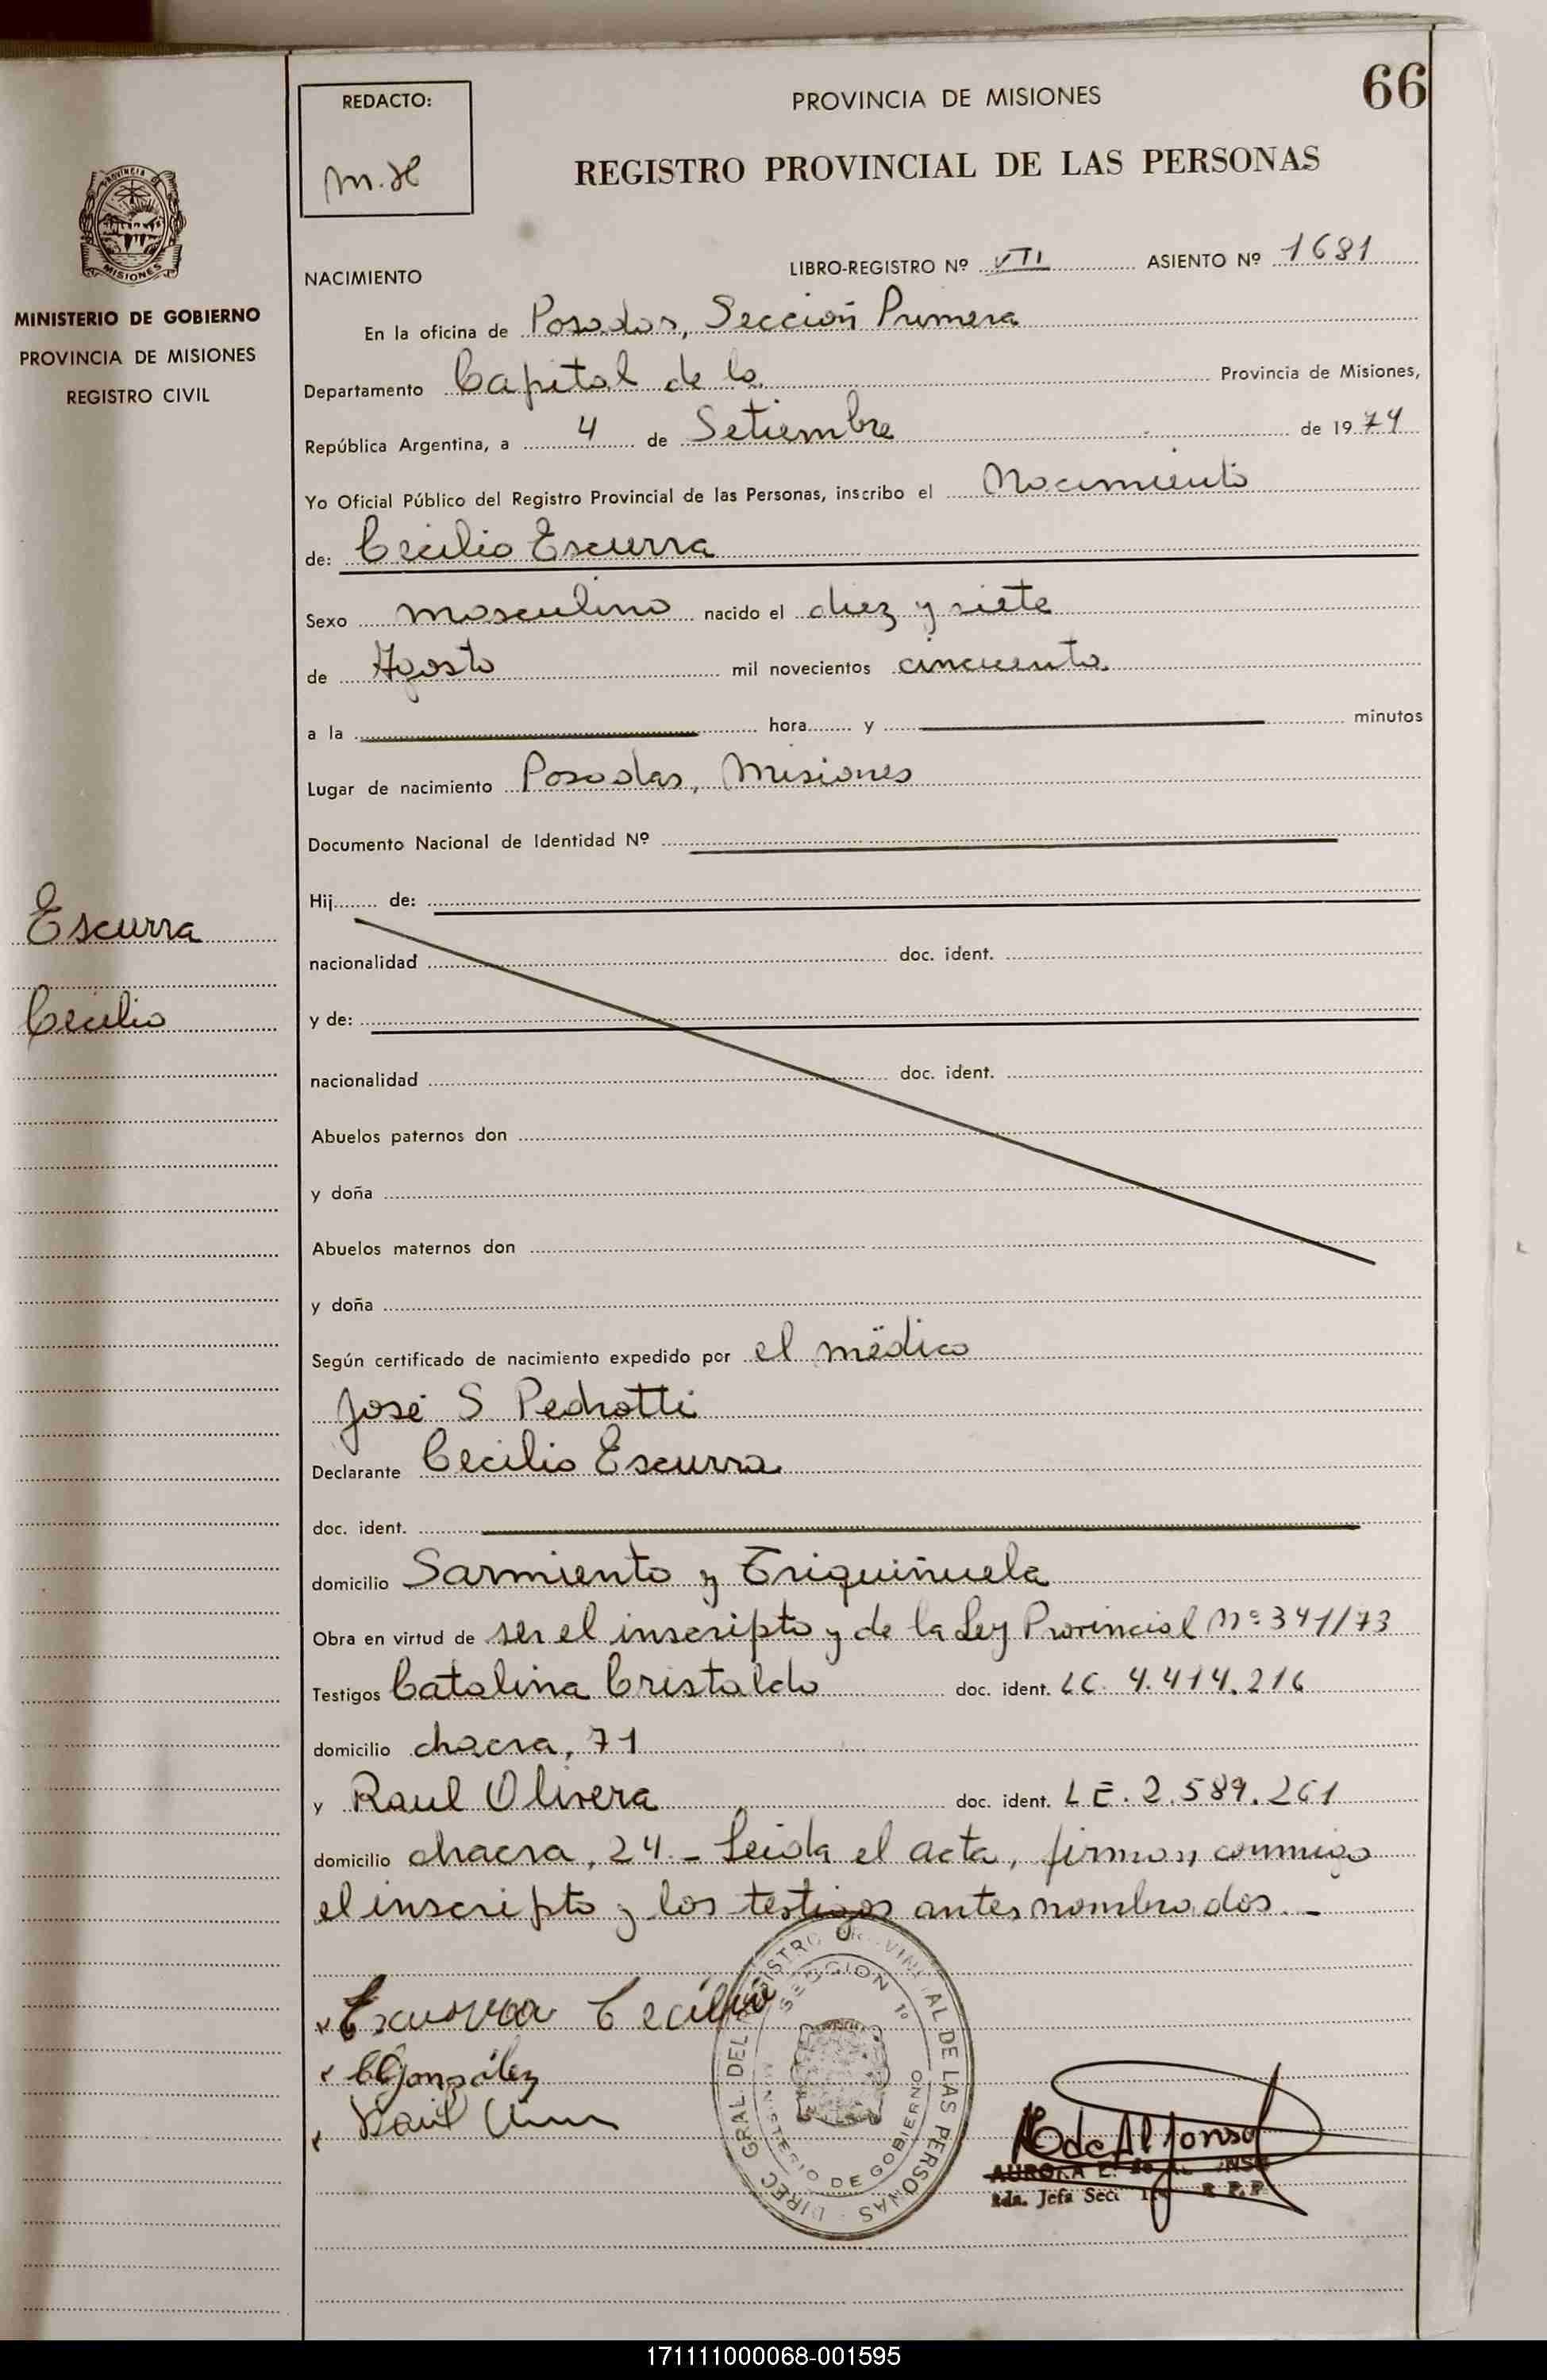 66
REDACTO:
PROVINCIA DE MISIONES
REGISTRO PROVINCIAL DE LAS PERSONAS
PROVINCIA
MISIONES
MINISTERIO DE GOBIERNO
PROVINCIA DE MISIONES
REGISTRO CIVIL
NACIMIENTO LIBRO-REGISTRO Nº VII ASIENTO Nº 1681
En la oficina de Posadas, Sección Primera
Departamento Capital de la Provincia de Misiones,
República Argentina, a 4 de Setiembre de 1974
Yo Oficial Público del Registro Provincial de las Personas, inscribo el Nacimiento
de: Cecilio Escurra
Sexo masculino nacido el diez y siete
de Agosto mil novecientos cincuenta
a la hora y minutos
Lugar de nacimiento Posadas, Misiones
Documento Nacional de Identidad Nº
Hij de:
Escurra
nacionalidad doc. ident.
Cecilio
y de:
nacionalidad doc. ident.
Abuelos paternos don
y doña
Abuelos maternos don
y doña
Según certificado de nacimiento expedido por el médico
José S Pedrotti
Declarante Cecilio Escurra
doc. ident.
domicilio Sarmiento y Triquiñuela
Obra en virtud de ser el inscripto y de la Ley Provincial Nº 341/73
Testigos Catalina Cristaldo doc. ident. LC. 4.414.216
domicilio chacra, 71
y Raul Olivera doc. ident. LE. 2.589.261
domicilio chacra, 24.- Leida el acta, firman conmigo
el inscripto y los testigos antes nombrados.-
Escurra Cecilio
CGonzález
Raúl
DIREC. GRAL. DEL REGISTRO PROVINCIAL DE LAS PERSONAS
SECCION 1º
MINISTERIO DE GOBIERNO
de Alfonso
AURORA E. de
Jefa Secc
171111000068-001595